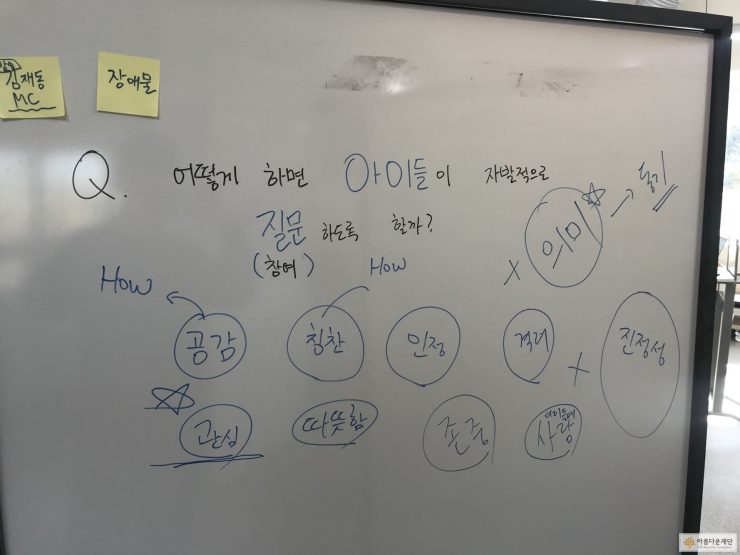 김제동
MC
장애물
Q. 어떻게 하면 아이들이 자발적으로
질문 하도록 할까?
(참여)
의미 → 동기
How
How
x
공감 칭찬 인정 격려 + 진정성
관심 따뜻함 존중 아이들에 사랑
아름다운재단